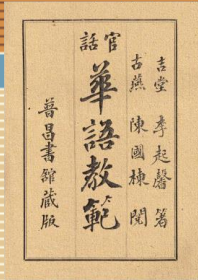 吉堂 李起馨 著
古燕 陳國棟 閱
官話
華語教範
普昌書館藏版